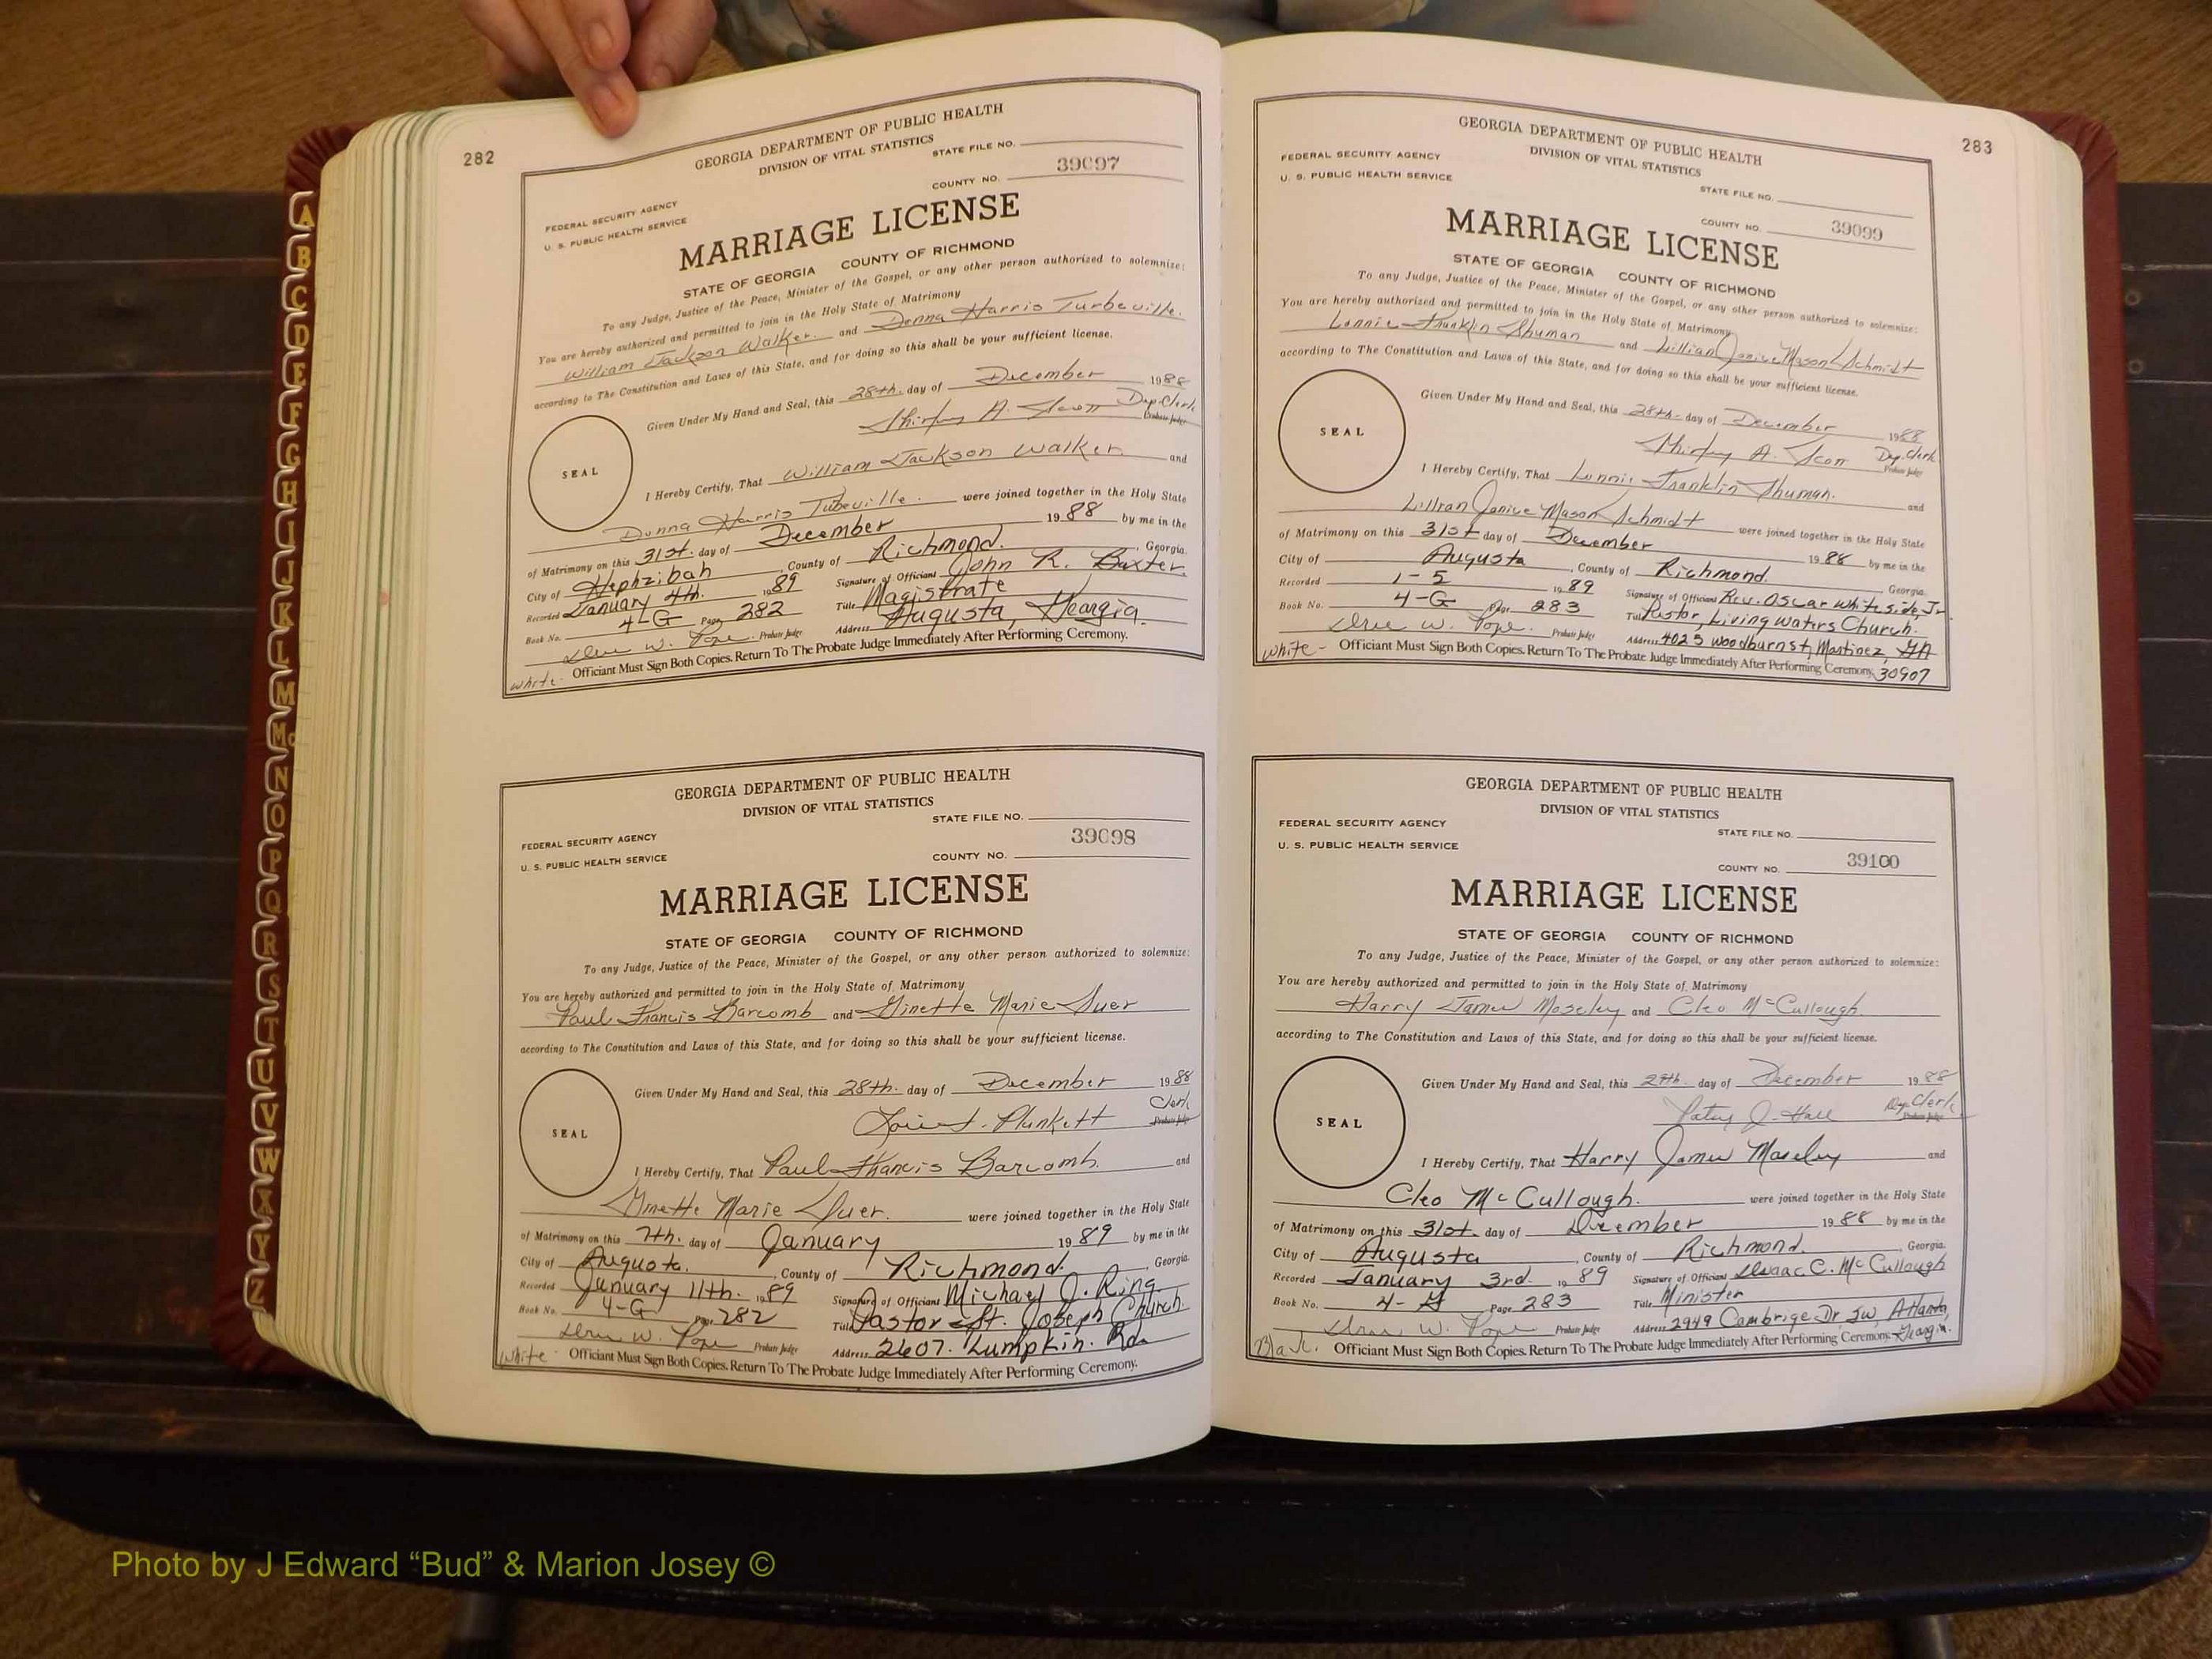 282
GEORGIA DEPARTMENT OF PUBLIC HEALTH
DIVISION OF VITAL STATISTICS
STATE FILE NO.
FEDERAL SECURITY AGENCY
U. S. PUBLIC HEALTH SERVICE
COUNTY NO. 39097
MARRIAGE LICENSE
STATE OF GEORGIA COUNTY OF RICHMOND
To any Judge, Justice of the Peace, Minister of the Gospel, or any other person authorized to solemnize:
You are hereby authorized and permitted to join in the Holy State of Matrimony
William Jackson Walker. and Donna Harris Turbeville.
according to The Constitution and Laws of this State, and for doing so this shall be your sufficient license.
Given Under My Hand and Seal, this 28th. day of December 1988
Shirley A. Scott Dep. Clerk
Probate Judge
SEAL
I Hereby Certify, That William Jackson Walker. and
Donna Harris Tubeville. were joined together in the Holy State
of Matrimony on this 31st. day of December 1988 by me in the
City of Hephzibah, County of Richmond., Georgia.
Recorded January 4th. 1989 Signature of Officiant John R. Baxter.
Book No. 4-G Page 282 Title Magistrate
W. Pope. Probate Judge Address Augusta, Georgia.
white. Officiant Must Sign Both Copies. Return To The Probate Judge Immediately After Performing Ceremony.
GEORGIA DEPARTMENT OF PUBLIC HEALTH
DIVISION OF VITAL STATISTICS
STATE FILE NO.
FEDERAL SECURITY AGENCY
U. S. PUBLIC HEALTH SERVICE
COUNTY NO. 39098
MARRIAGE LICENSE
STATE OF GEORGIA COUNTY OF RICHMOND
To any Judge, Justice of the Peace, Minister of the Gospel, or any other person authorized to solemnize:
You are hereby authorized and permitted to join in the Holy State of Matrimony
Paul Francis Barcomb and Ginette Marie Duer
according to The Constitution and Laws of this State, and for doing so this shall be your sufficient license.
Given Under My Hand and Seal, this 28th. day of December 1988
Plunkett Clerk
Probate Judge
SEAL
I Hereby Certify, That Paul Francis Barcomb. and
Ginette Marie Duer. were joined together in the Holy State
of Matrimony on this 7th. day of January 1989 by me in the
City of Augusta., County of Richmond., Georgia.
Recorded January 11th. 1989 Signature of Officiant Michael J. Ring.
Book No. 4-G Page 282 Title Pastor St. Joseph Church.
W. Pope Probate Judge Address 2607. Lumpkin. Rd.
white. Officiant Must Sign Both Copies. Return To The Probate Judge Immediately After Performing Ceremony.
283
GEORGIA DEPARTMENT OF PUBLIC HEALTH
DIVISION OF VITAL STATISTICS
FEDERAL SECURITY AGENCY
U. S. PUBLIC HEALTH SERVICE
STATE FILE NO.
COUNTY NO. 39099
MARRIAGE LICENSE
STATE OF GEORGIA COUNTY OF RICHMOND
To any Judge, Justice of the Peace, Minister of the Gospel, or any other person authorized to solemnize:
You are hereby authorized and permitted to join in the Holy State of Matrimony
Lonnie Franklin Shuman and Lillian Janice Mason Schmidt
according to The Constitution and Laws of this State, and for doing so this shall be your sufficient license.
Given Under My Hand and Seal, this 28th. day of December 1988
Shirley A. Scott Dep. Clerk
Probate Judge
SEAL
I Hereby Certify, That Lonnie Franklin Shuman. and
Lillian Janice Mason Schmidt were joined together in the Holy State
of Matrimony on this 31st day of December 1988 by me in the
City of Augusta, County of Richmond. Georgia.
Recorded 1-5 1989 Signature of Officiant Rev. Oscar Whiteside, Jr.
Book No. 4-G Page 283 Title Pastor, Living Waters Church.
W. Pope. Probate Judge Address 4025 Woodburn st, Martinez, GA
white - Officiant Must Sign Both Copies. Return To The Probate Judge Immediately After Performing Ceremony. 30907
GEORGIA DEPARTMENT OF PUBLIC HEALTH
DIVISION OF VITAL STATISTICS
FEDERAL SECURITY AGENCY
STATE FILE NO.
U. S. PUBLIC HEALTH SERVICE
COUNTY NO. 39100
MARRIAGE LICENSE
STATE OF GEORGIA COUNTY OF RICHMOND
To any Judge, Justice of the Peace, Minister of the Gospel, or any other person authorized to solemnize:
You are hereby authorized and permitted to join in the Holy State of Matrimony
Harry James Moseley and Cleo McCullough.
according to The Constitution and Laws of this State, and for doing so this shall be your sufficient license.
Given Under My Hand and Seal, this 29th. day of December 1988
Patsy J. Hall Dep. Clerk
Probate Judge
SEAL
I Hereby Certify, That Harry James Moseley and
Cleo McCullough. were joined together in the Holy State
of Matrimony on this 31st. day of December 1988 by me in the
City of Augusta, County of Richmond., Georgia.
Recorded January 3rd. 1989 Signature of Officiant Isaac C. McCullough
Book No. 4-G Page 283 Title Minister
W. Pope Probate Judge Address 2949 Cambrige Dr, Sw, Atlanta,
Black. Officiant Must Sign Both Copies. Return To The Probate Judge Immediately After Performing Ceremony. Georgia.
A
B
C
D
E
F
G
H
I
J
K
L
M
Mc
N
O
P
Q
R
S
T
U
V
W
X
Y
Z
Photo by J Edward “Bud” & Marion Josey ©